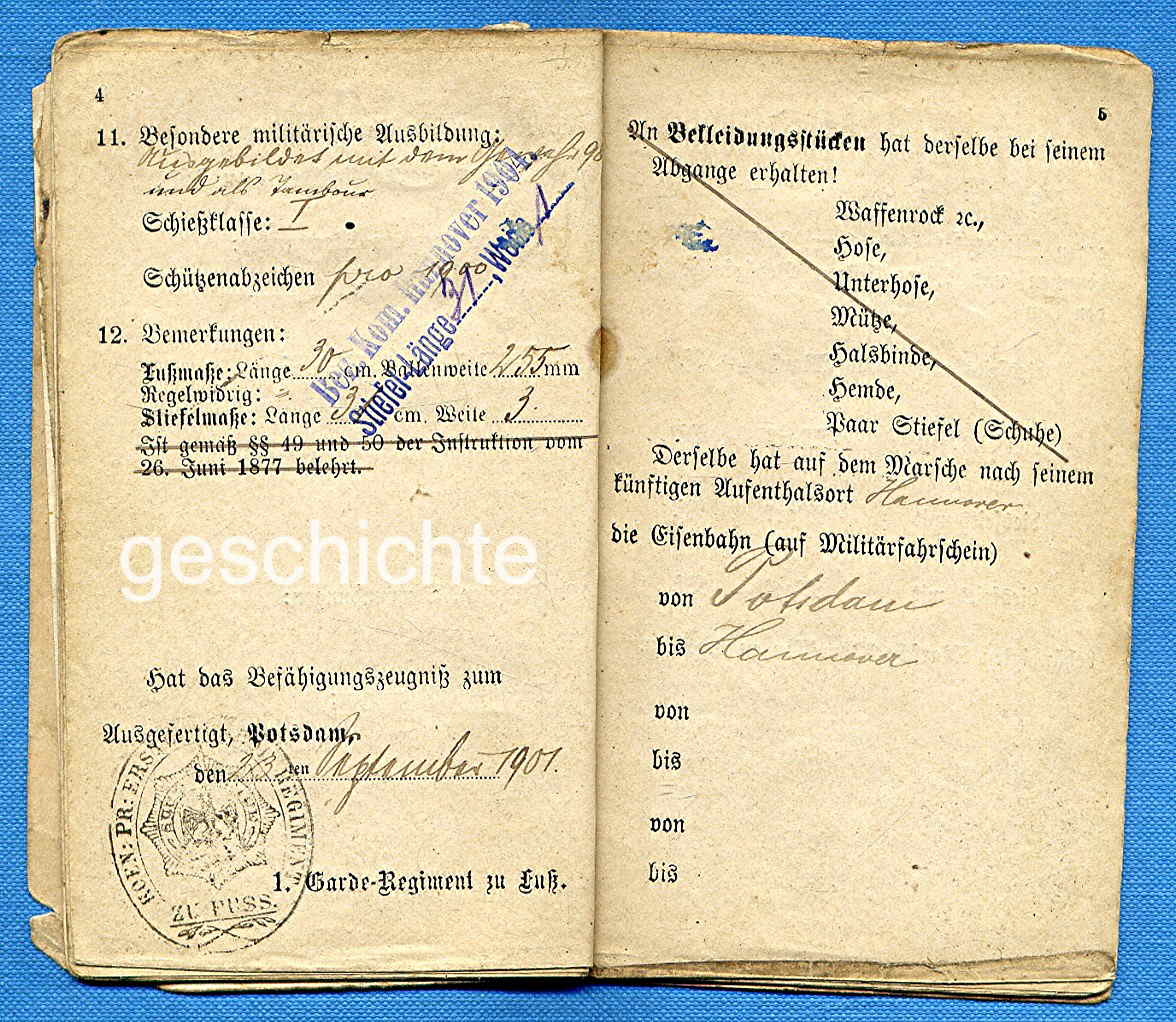 4
11. Besondere militärische Ausbildung:
Ausgebildet mit dem Gewehr 98
und als Tambour
Schießklasse: I
Schützenabzeichen pro 1900
12. Bemerkungen:
Fußmaße: Länge 30 cm. Ballenweite 255 mm
Regelwidrig: "
Stiefelmaße: Länge 31 cm. Weite 3.
Ist gemäß §§ 49 und 50 der Instruktion vom
26. Juni 1877 belehrt.
Bez. Kom. Hannover 1904.
Stiefel-Länge 31, Weite 1
geschichte
Hat das Befähigungszeugniß zum
Ausgefertigt, Potsdam,
den 23ten September 1901.
1. Garde-Regiment zu Fuß.
KOEN: PR: ERS REGIMENT
ZU FUSS.
5
An Bekleidungsstücken hat derselbe bei seinem
Abgange erhalten!
Waffenrock ꝛc.,
Hose,
Unterhose,
Mütze,
Halsbinde,
Hemde,
Paar Stiefel (Schuhe)
Derselbe hat auf dem Marsche nach seinem
künftigen Aufenthalsort Hannover
die Eisenbahn (auf Militärfahrschein)
von Potsdam
bis Hannover
von
bis
von
bis